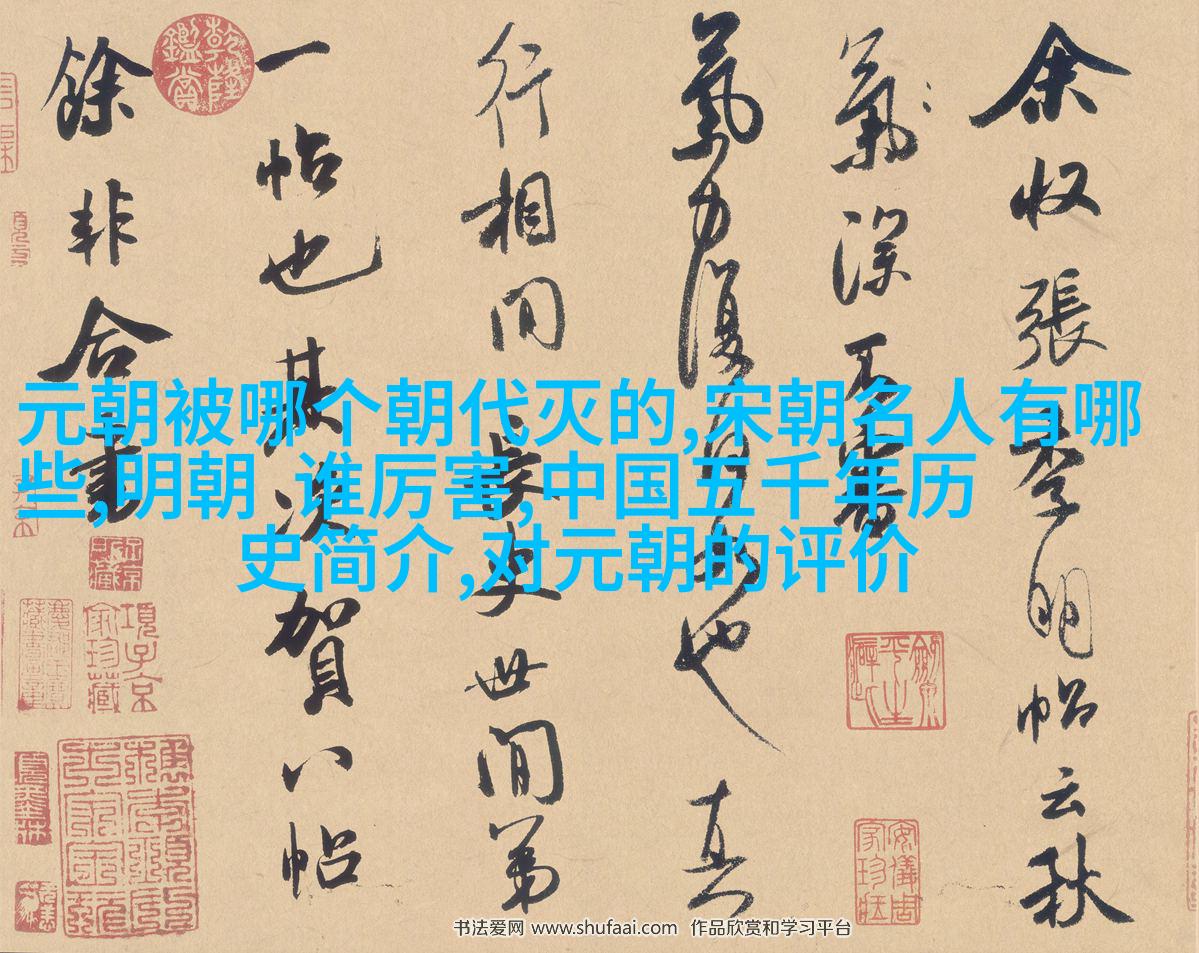 余收張季明帖云秋
氣深不審
氣力復何如也真
行相間長史世間第
一帖也其次賀八帖
餘非合書
元朝被哪个朝代灭的,宋朝名人有哪
些,明朝 谁厉害,中国五千年历
史简介,对元朝的评价
乾隆鑑賞
項子京家珍藏
安儀周家珍藏
书法爱网 www.shufaai.com 作品欣赏和学习平台